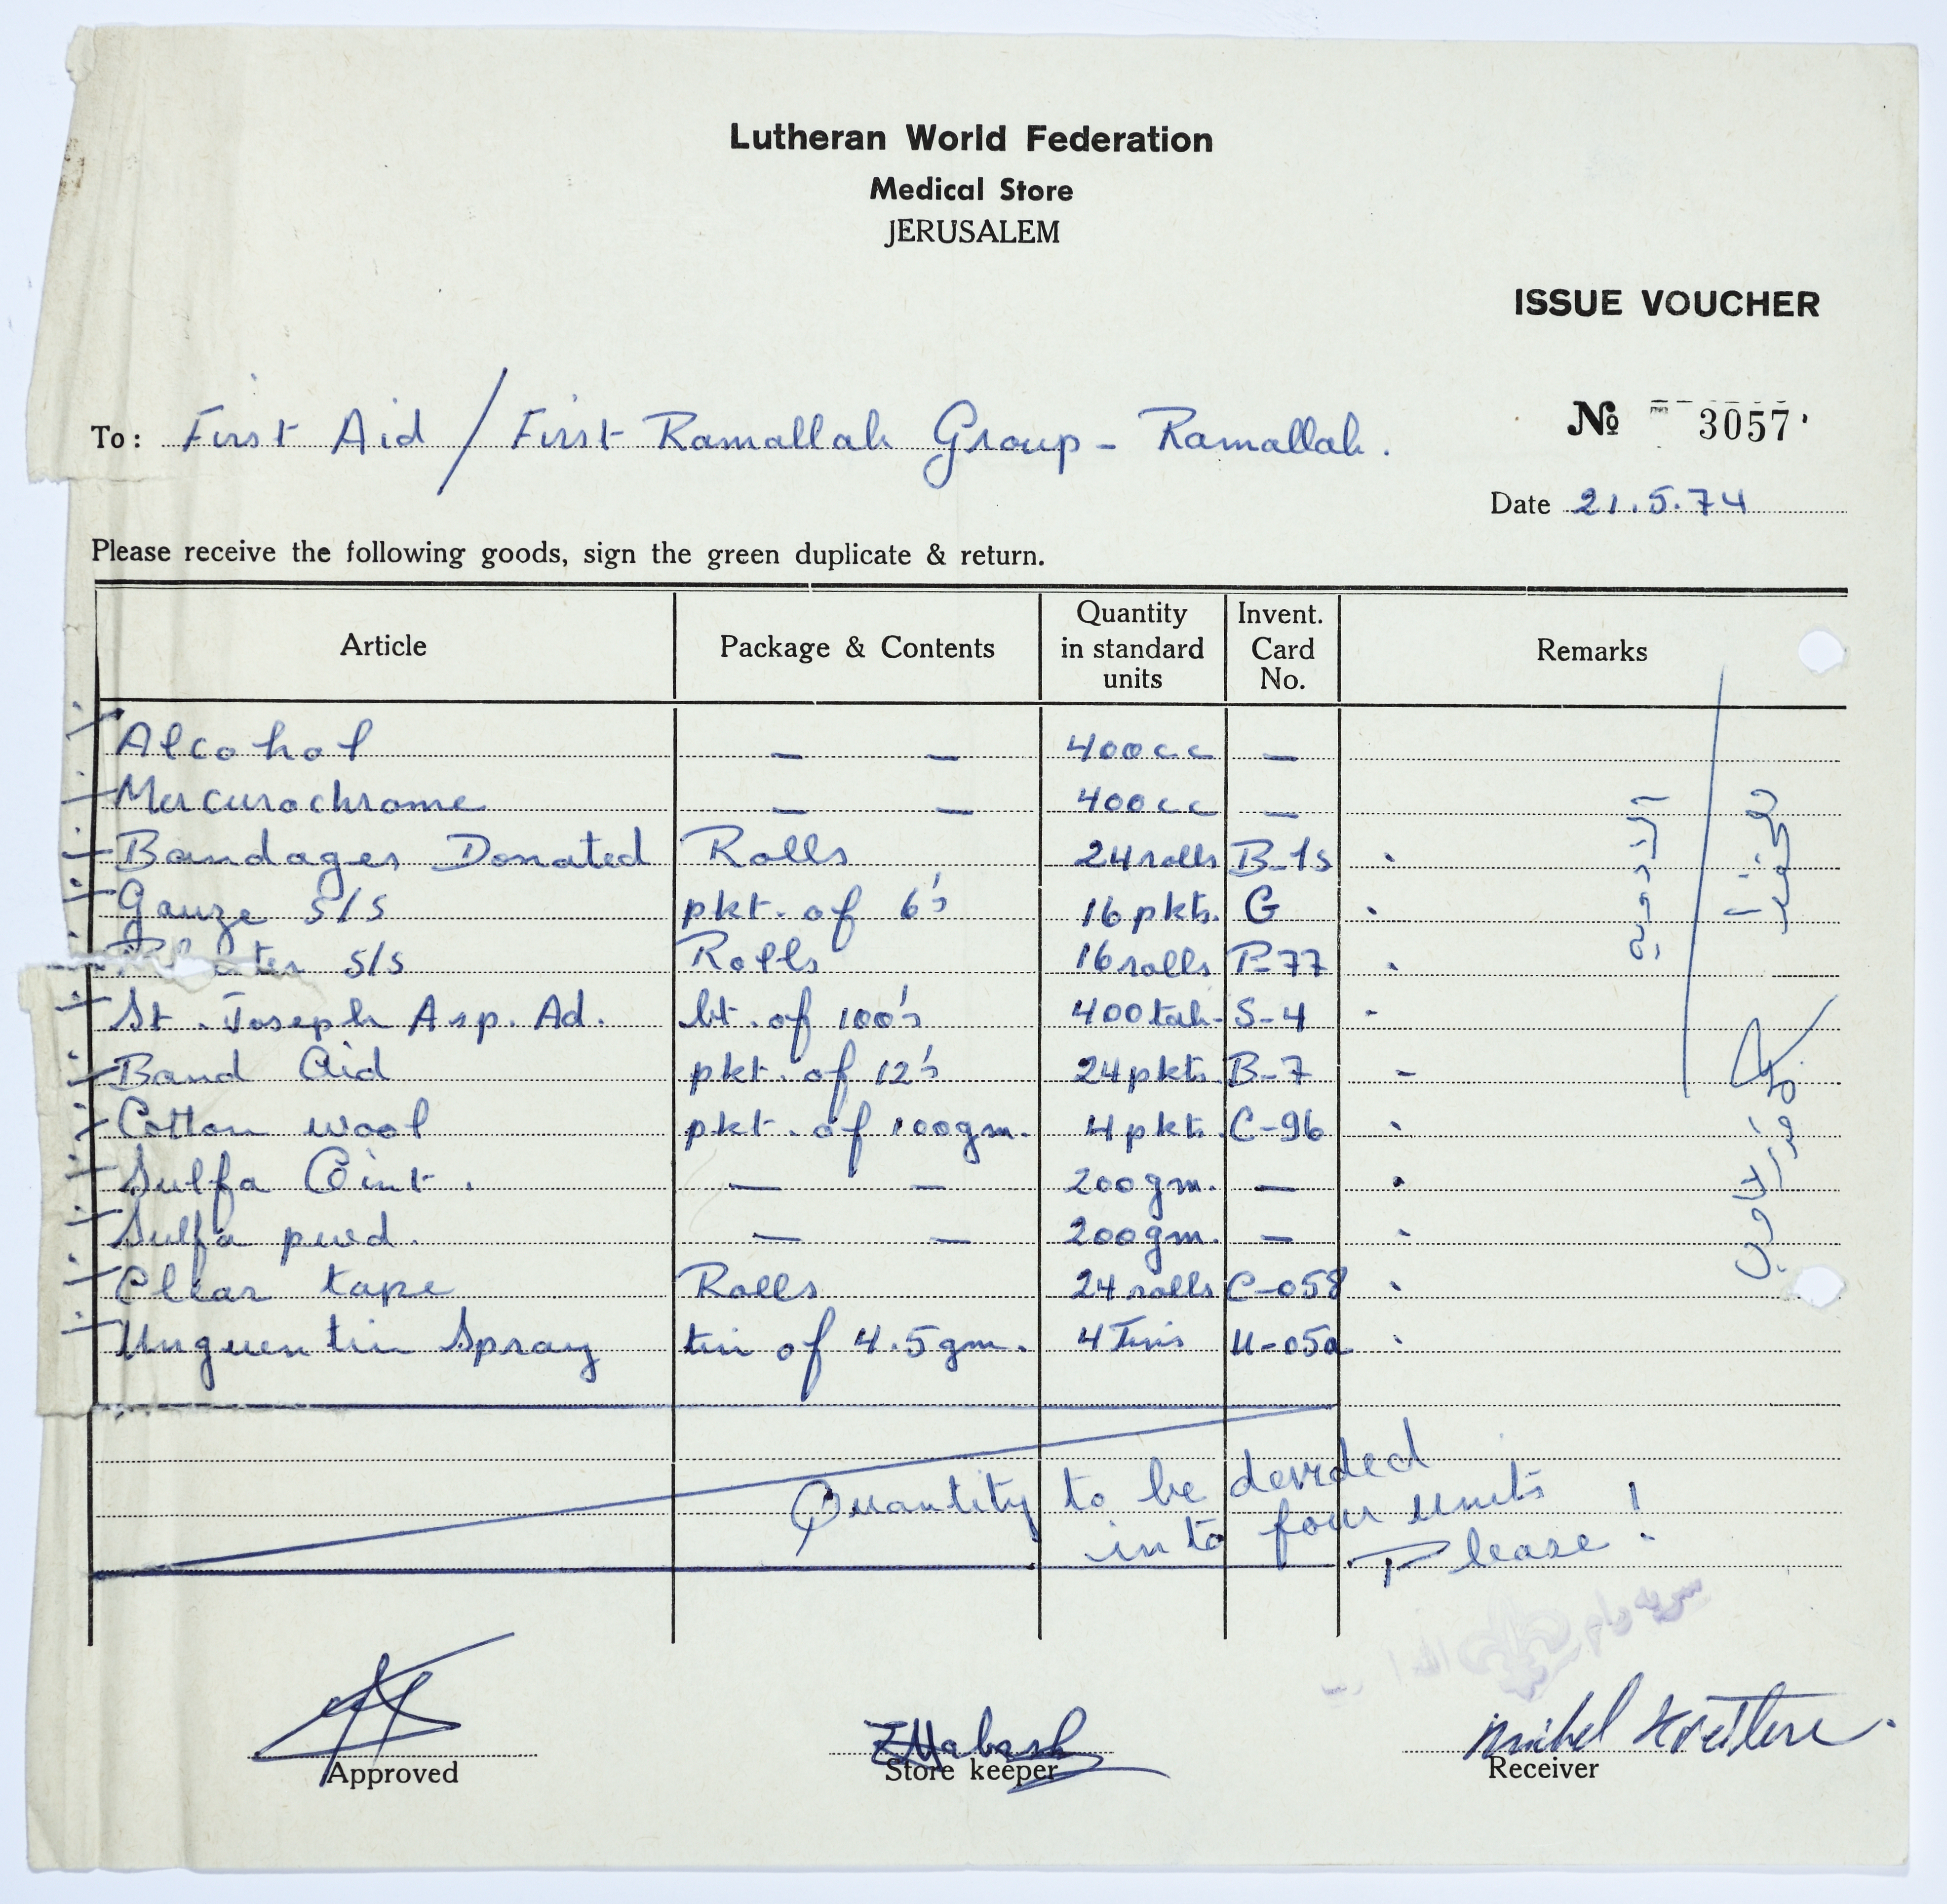 Lutheran World Federation
Medical Store
JERUSALEM
ISSUE VOUCHER
№ 3057
To: First Aid / First Ramallah Group - Ramallah.
Date 21.5.74
Please receive the following goods, sign the green duplicate & return.
Article Package & Contents Quantity in standard units Invent. Card No. Remarks
Alcohol — — 400cc —
Mercurochrome — — 400cc —
Bandages Donated Rolls 24 rolls B-15
Gauze S/S pkt. of 6's 16 pkts. G
S/S Rolls 16 rolls P-77
St. Joseph Asp. Ad. bt. of 100's 400 tab. S-4
Band Aid pkt. of 12's 24 pkts. B-7
Cotton wool pkt. of 100gm. 4 pkts. C-96
Sulfa Oint. — — 200gm. —
Sulfa pwd. — — 200gm. —
Clear tape Rolls 24 rolls C-058
Unguentin Spray tin of 4.5gm. 4 Tins U-05a
الادوية
Quantity to be devided
into four units
Please !
سرية رام الله
Approved
Store keeper
Receiver